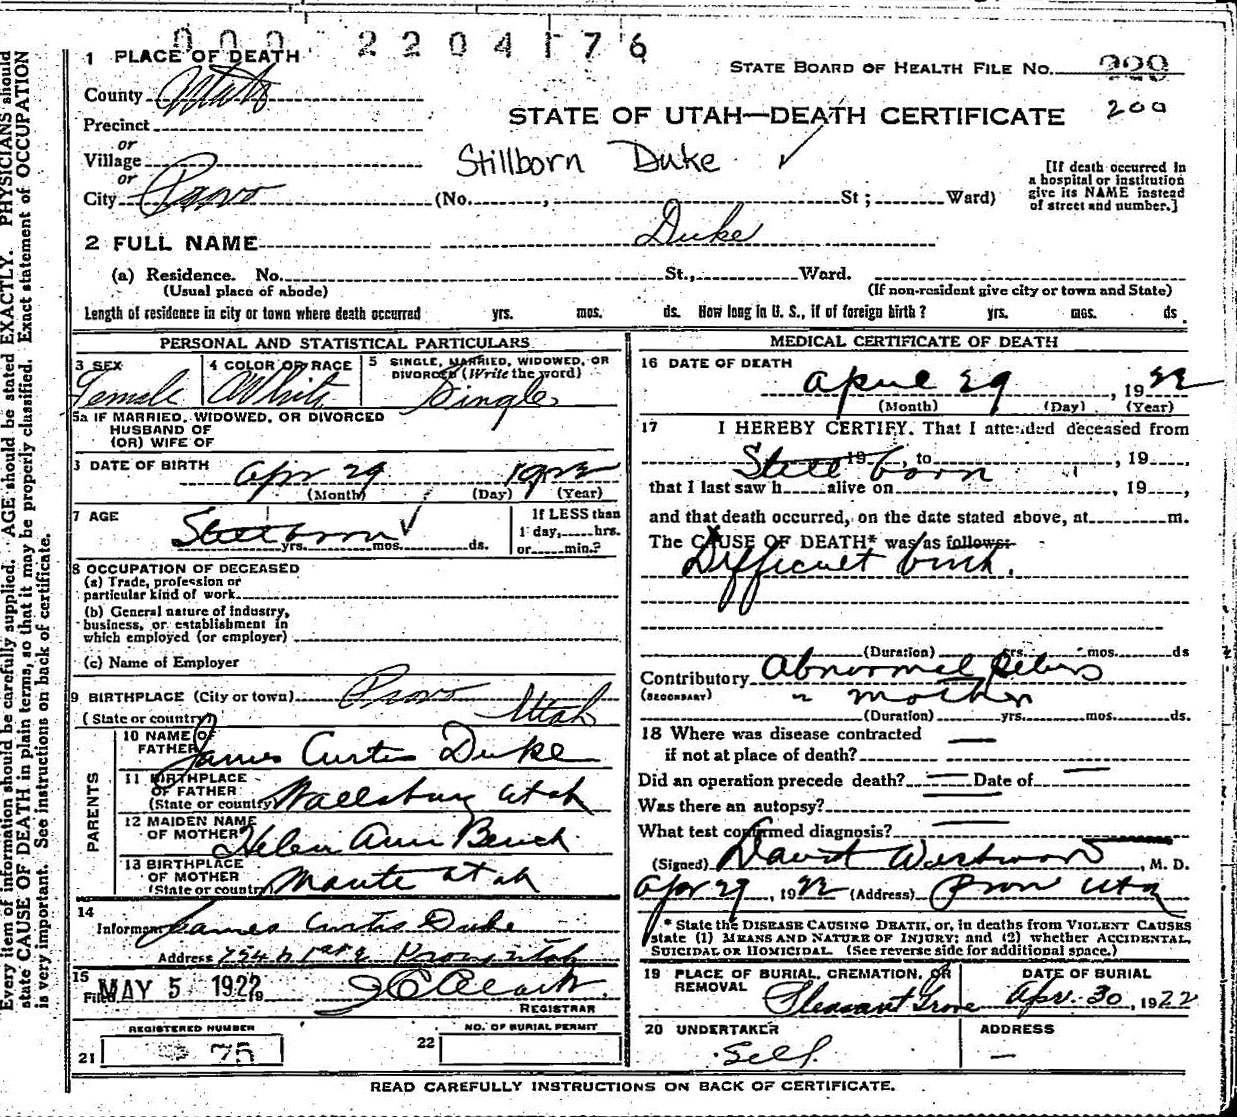 000 2204176
1 PLACE OF DEATH
STATE BOARD OF HEALTH FILE No. 220
County Utah
200
STATE OF UTAH—DEATH CERTIFICATE
Precinct
or
Village
Stillborn Duke ✓
or
City Provo (No. , St ; Ward)
[If death occurred in
a hospital or institution
give its NAME instead
of street and number.]
2 FULL NAME Duke
(a) Residence. No. St., Ward.
(Usual place of abode) (If non-resident give city or town and State)
Length of residence in city or town where death occurred yrs. mos. ds. How long in U. S., if of foreign birth? yrs. mos. ds.
PERSONAL AND STATISTICAL PARTICULARS
3 SEX 4 COLOR OR RACE 5 SINGLE, MARRIED, WIDOWED, OR
DIVORCED (Write the word)
Female White Single
5a IF MARRIED, WIDOWED, OR DIVORCED
HUSBAND OF
(OR) WIFE OF
3 DATE OF BIRTH Apr 29 1922
(Month) (Day) (Year)
7 AGE Still born ✓ If LESS than
1 day, hrs.
yrs. mos. ds. or min.?
8 OCCUPATION OF DECEASED
(a) Trade, profession or
particular kind of work
(b) General nature of industry,
business, or establishment in
which employed (or employer)
(c) Name of Employer
9 BIRTHPLACE (City or town) Provo
(State or country) Utah
PARENTS
10 NAME OF
FATHER James Curtis Duke
11 BIRTHPLACE
OF FATHER
(State or country) Wallsburg Utah
12 MAIDEN NAME
OF MOTHER Helen Ann Bench
13 BIRTHPLACE
OF MOTHER
(State or country) Mante Utah
14
Informant James Curtis Duke
Address Provo Utah
15
Filed MAY 5 1922
REGISTRAR
REGISTERED NUMBER NO. OF BURIAL PERMIT
21 75 22
MEDICAL CERTIFICATE OF DEATH
16 DATE OF DEATH
April 29, 1922
(Month) (Day) (Year)
17 I HEREBY CERTIFY. That I attended deceased from
Still 19 born, to , 19 ,
that I last saw h alive on , 19 ,
and that death occurred, on the date stated above, at m.
The CAUSE OF DEATH* was as follows:
Difficult birth.
(Duration) yrs. mos. ds
Contributory Abnormal Pelvis
(SECONDARY) in mother
(Duration) yrs. mos. ds.
18 Where was disease contracted
if not at place of death?
Did an operation precede death? Date of
Was there an autopsy?
What test confirmed diagnosis?
(Signed) David Westwood, M. D.
Apr 29, 1922 (Address) Provo Utah
* State the DISEASE CAUSING DEATH, or, in deaths from VIOLENT CAUSES
state (1) MEANS AND NATURE OF INJURY; and (2) whether ACCIDENTAL,
SUICIDAL OR HOMICIDAL. (See reverse side for additional space.)
19 PLACE OF BURIAL, CREMATION, OR
REMOVAL
DATE OF BURIAL
Pleasant Grove Apr. 30, 1922
20 UNDERTAKER ADDRESS
Self —
READ CAREFULLY INSTRUCTIONS ON BACK OF CERTIFICATE.
Every item of information should be carefully supplied. AGE should be stated EXACTLY. PHYSICIANS should
state CAUSE OF DEATH in plain terms, so that it may be properly classified. Exact statement of OCCUPATION
is very important. See instructions on back of certificate.